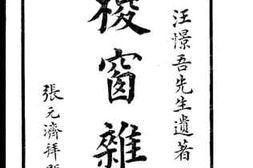 汪憬吾先生遺著
椶窗雜
張元濟拜